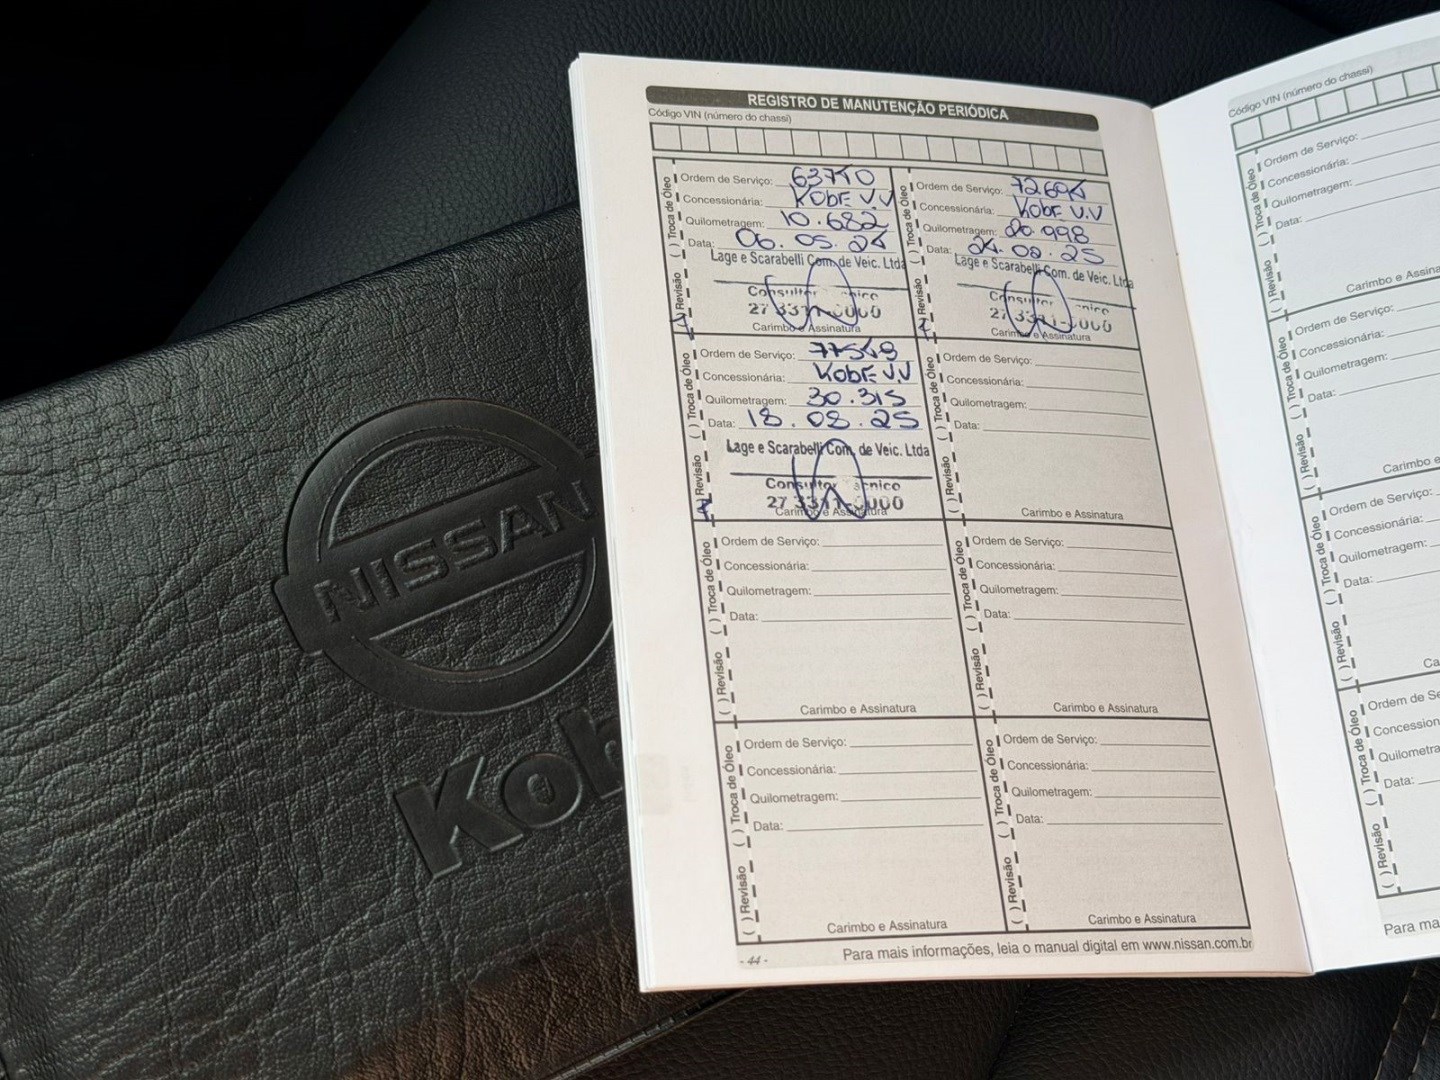 REGISTRO DE MANUTENÇÃO PERIÓDICA
Código VIN (número do chassi)
( ) Troca de Óleo
Revisão
Ordem de Serviço: 63740
Concessionária: KOBE V.V
Quilometragem: 10.682
Data: 06.05.24
Lage e Scarabelli Com. de Veic. Ltda
Carimbo e Assinatura
( ) Troca de Óleo
Revisão
Ordem de Serviço:
Concessionária: KOBE V.V
Quilometragem: 20.998
Data:
Lage e Scarabelli Com. de Veic. Ltda
Carimbo e Assinatura
( ) Troca de Óleo
Revisão
Ordem de Serviço:
Concessionária: KOBE V.V
Quilometragem: 30.315
Data: 18.08.25
Lage e Scarabelli Com. de Veic. Ltda
Carimbo e Assinatura
( ) Troca de Óleo
( ) Revisão
Ordem de Serviço:
Concessionária:
Quilometragem:
Data:
Carimbo e Assinatura
( ) Troca de Óleo
( ) Revisão
Ordem de Serviço:
Concessionária:
Quilometragem:
Data:
Carimbo e Assinatura
( ) Troca de Óleo
( ) Revisão
Ordem de Serviço:
Concessionária:
Quilometragem:
Data:
Carimbo e Assinatura
( ) Troca de Óleo
( ) Revisão
Ordem de Serviço:
Concessionária:
Quilometragem:
Data:
Carimbo e Assinatura
( ) Troca de Óleo
( ) Revisão
Ordem de Serviço:
Concessionária:
Quilometragem:
Data:
Carimbo e Assinatura
- 44 -
Para mais informações, leia o manual digital em www.nissan.com.br
Código VIN (número do chassi)
( ) Troca de Óleo
( ) Revisão
Ordem de Serviço:
Concessionária:
Quilometragem:
Data:
Carimbo e
( ) Troca de Óleo
( ) Revisão
Ordem de Serviço:
Concessionária:
Quilometragem:
Data:
Carimbo e
( ) Troca de Óleo
( ) Revisão
Ordem de Serviço:
Concessionária:
Quilometragem:
Data:
( ) Troca de Óleo
( ) Revisão
Ordem de
Data:
Para
NISSAN